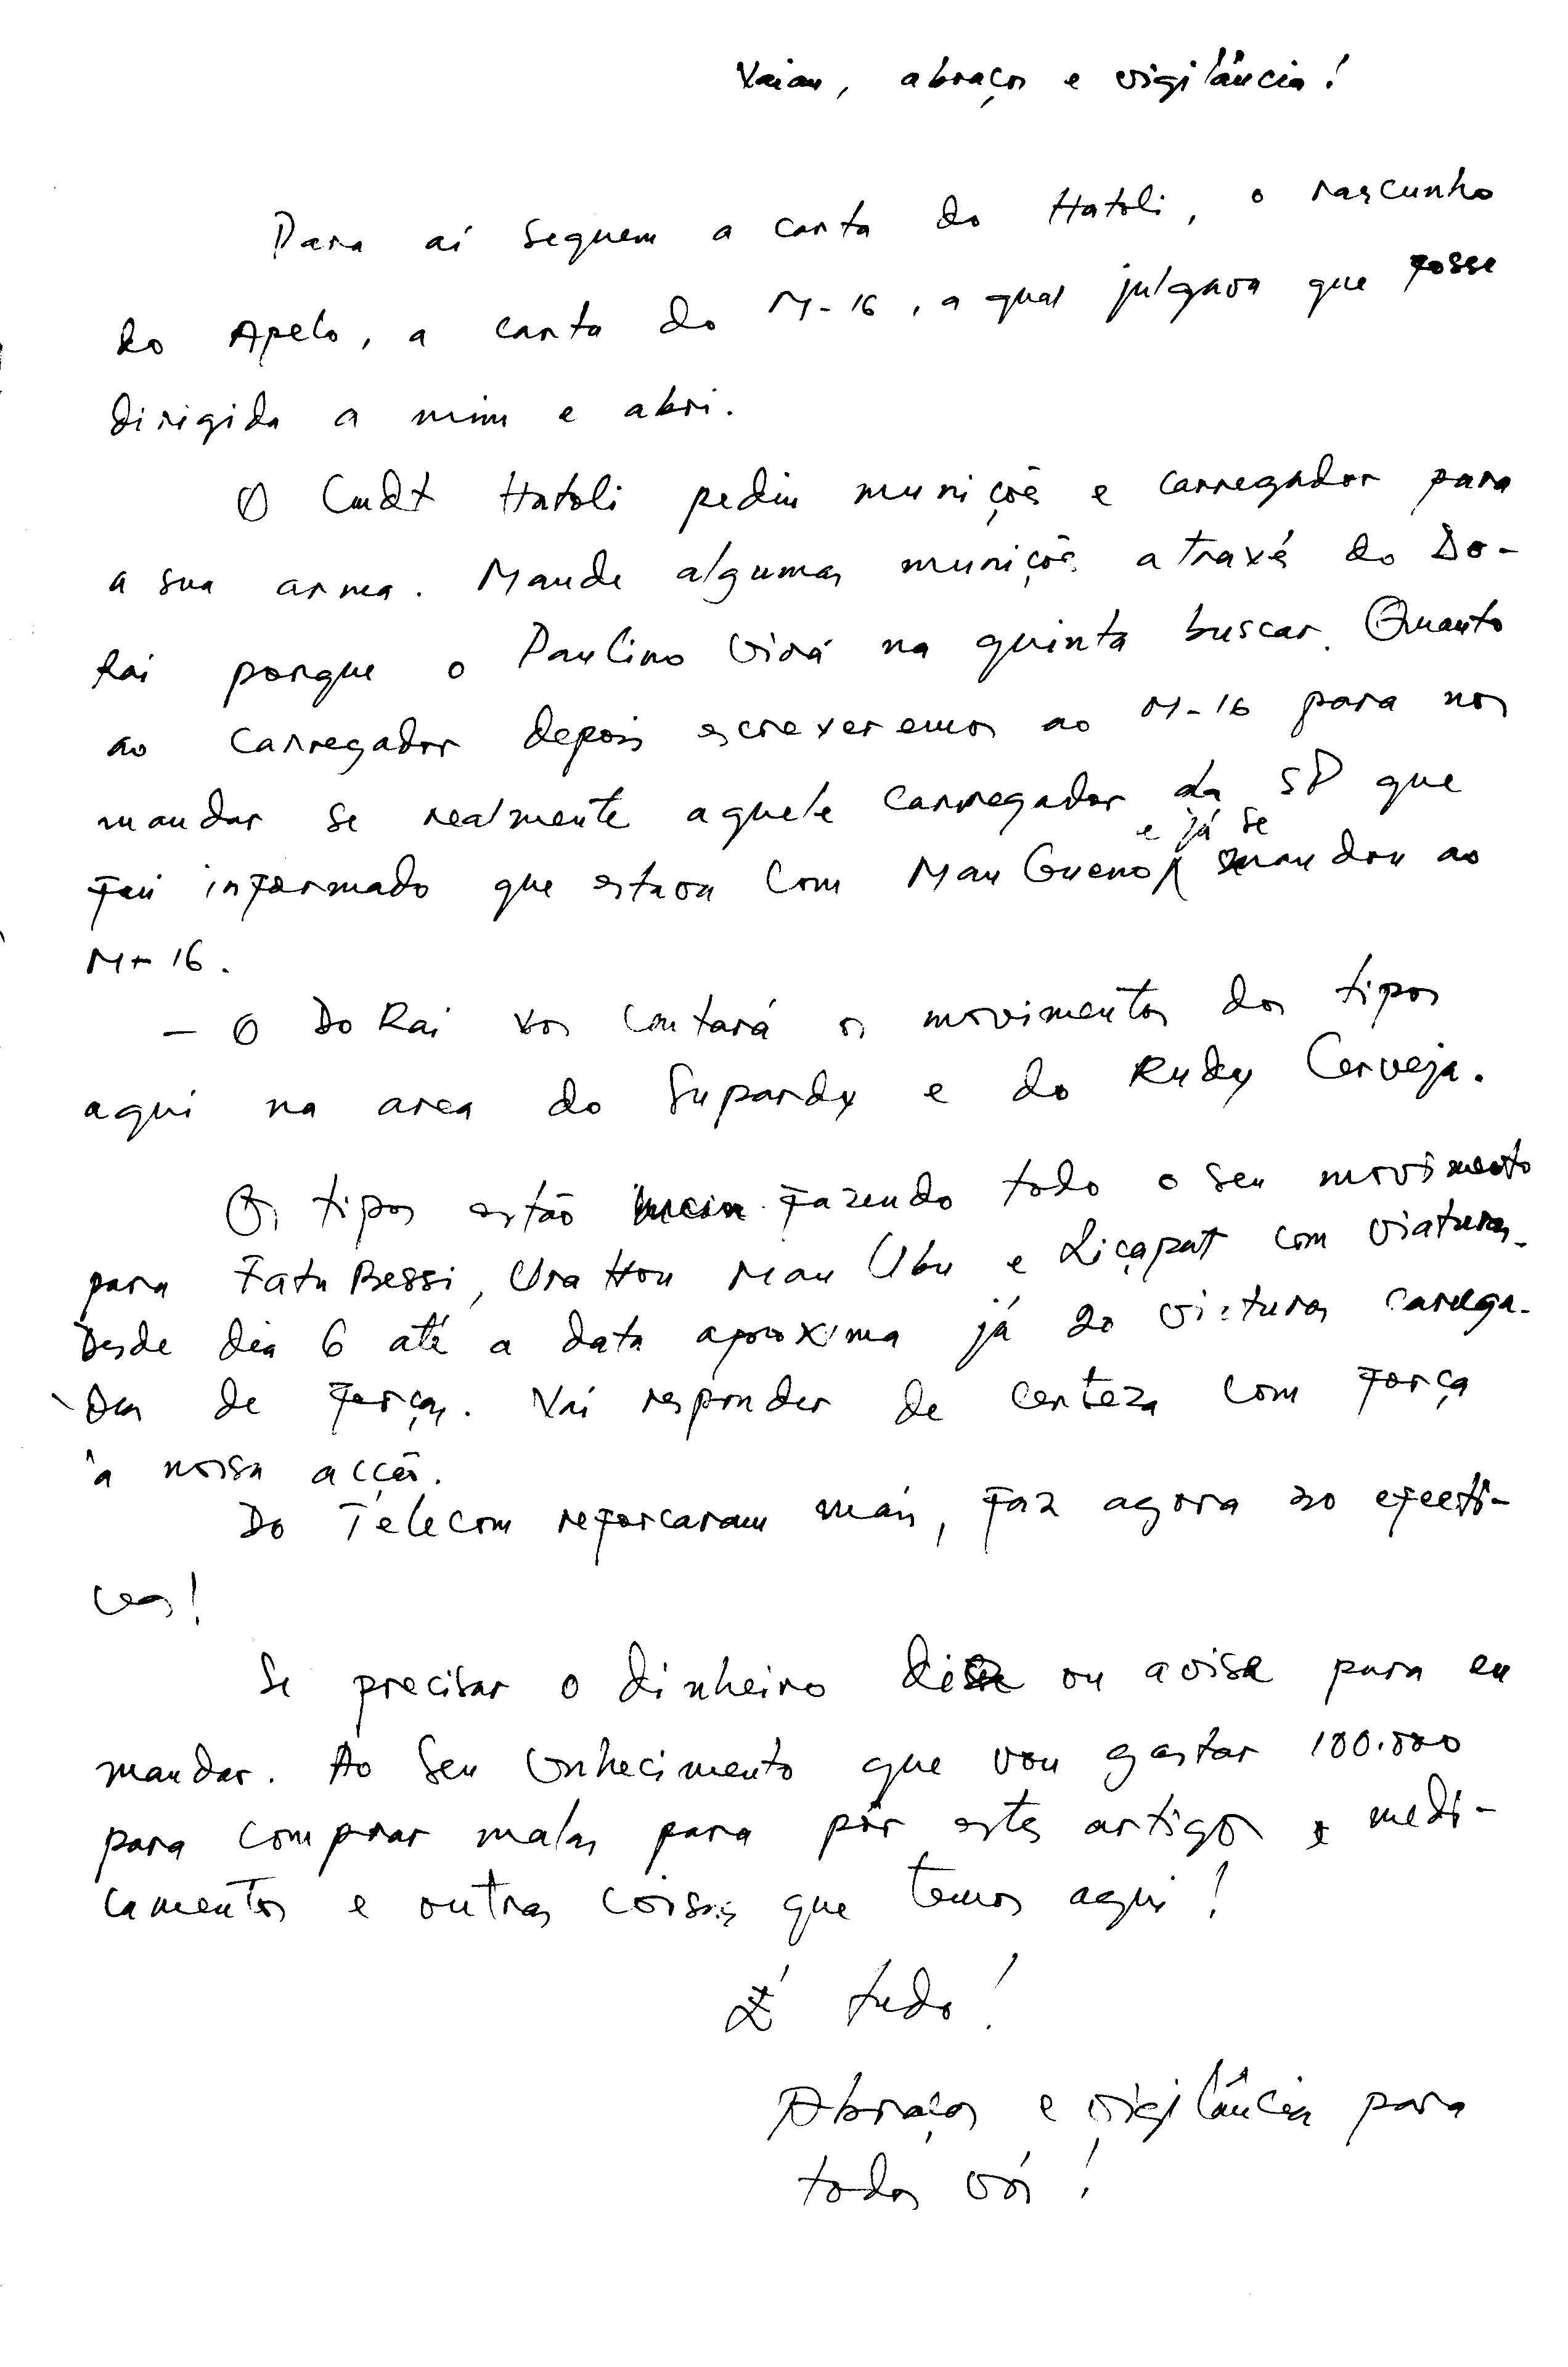 Vaian, abraços e vigilância!
Para aí seguem a carta do Hatoli, o rascunho
do Apelo, a carta do M-16, a qual julgava que fosse
dirigida a mim e abri.
O Cmdt Hatoli pediu munições e carregador para
a sua arma. Mande algumas munições através do Do-
Rai porque o Paulino virá na quinta buscar. Quanto
ao carregador depois escreveremos ao M-16 para nos
mandar se realmente aquele carregador da SP que
e já se
fui informado que estava com Mau Gueno mandou ao
M-16.
- O DoRai vos contará os movimentos dos tipos
aqui na area do Supardy e do Rudy Cerveja.
Os tipos estão fazendo todo o seu movimento
para Fatu Bessi, Ura Hou Mau Ubu e Liçapat com viaturas.
Desde dia 6 até a data aproxima já 20 viaturas carrega-
das de forças. Vai responder de certeza com força
à nossa acção.
Do Télecom reforcaram mais, faz agora 20 efecti-
vos!
Se precisar o dinheiro ou avise para eu
mandar. Ao seu conhecimento que vou gastar 100.000
para comprar malas para pôr estes artigos e medi-
camentos e outras coisas que temos aqui!
É tudo!
Abraços e vigilância para
todos vós!